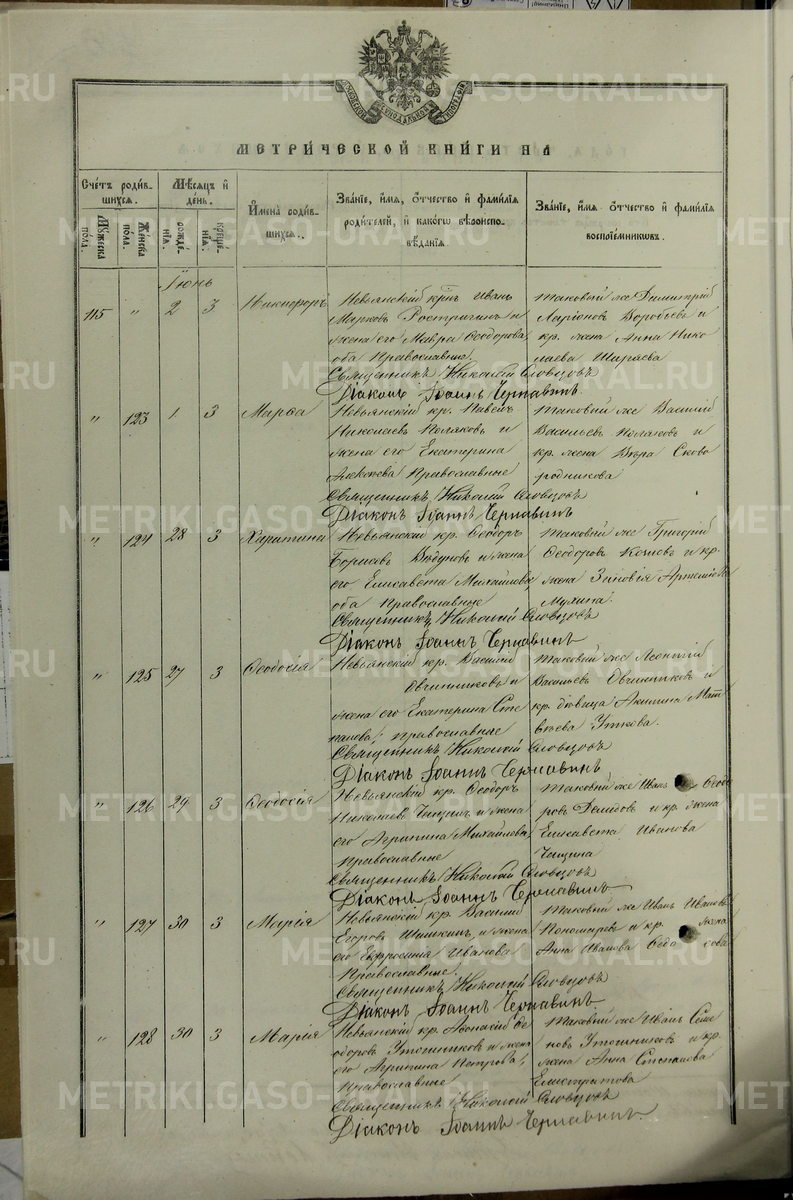 МЕТРИ́ЧЕСКОЙ КНИ́ГИ НА
Счéтъ роди́вшихся.
Мѣ́сяцъ и де́нь.
И҆мена̀ роди́вшихся.
Зва́нїе, и҆́мя, ѻ҆́тчество и҆ фами́лїя роди́телей, и҆ како́гѡ вѣроисповѣ́данїя.
Зва́нїе, и҆́мя ѻ҆́тчество и҆ фами́лїя воспрїе́мникѡвъ.
Мꙋ́жеска по́ла.
Же́нска по́ла.
рожде́нїя.
креще́нїя.
Iюнь
115 " 2 3 Никифоръ
Невьянскiй кр. Иванъ
Марковъ Рострягинъ и
жена его Мавра Ѳеодорова,
оба Православные.
Священникъ Николай Словцовъ
Дiаконъ Iоаннъ Чернавинъ
Таковый же Димитрiй
Ларiоновъ Воробьевъ и
кр. жена Анна Нико
лаева Ширяева
" 123 1 3 Марѳа
Невьянскiй кр. Павелъ
Николаевъ Поляковъ и
жена его Екатерина
Алексѣева Православные
Священникъ Николай Словцовъ
Дiаконъ Iоаннъ Чернавинъ
Таковый же Василiй
Васильевъ Поляковъ и
кр. жена Вѣра Сково
родникова
" 124 28 3 Харитина
Невьянскiй кр. Ѳеодоръ
Борисовъ и жена
его Елисавета Михайлова,
оба Православные
Священникъ Николай Словцовъ
Дiаконъ Iоаннъ Чернавинъ
Таковый же Григорiй
Ѳеодоровъ и кр.
жена Зиновiя Артемiева
Мухина.
" 125 27 3 Ѳеодосiя
Невьянскiй кр. Василiй
Овчинниковъ и
жена его Екатерина Сте
панова, православные
Священникъ Николай Словцовъ
Дiаконъ Iоаннъ Чернавинъ
Таковый же Леонтiй
Васильевъ Овчинниковъ и
кр. дѣвица Акилина Мат
вѣева Уткова.
" 126 29 3 Ѳеодосiя
Невьянскiй кр. Ѳеодоръ
Николаевъ и жена
его Агрипина Михайлова,
Православные
Священникъ Николай Словцовъ
Дiаконъ Iоаннъ Чернавинъ
Таковый же Иванъ Ѳеодо
ровъ Демидовъ и кр. жена
Елисавета Иванова
" 127 30 3 Марiя
Невьянскiй кр. Василiй
Егоровъ Шишкинъ, и жена
его Евфросинiя Иванова
Православные.
Священникъ Николай Словцовъ
Дiаконъ Iоаннъ Чернавинъ
Таковый же Иванъ Ивановъ
Пономаревъ и кр. жена
Анна Иванова
" 128 30 3 Марiя
Невьянскiй кр. Аѳонасiй Ѳе
одоровъ Утюшниковъ и жена
его Агрипина Петрова,
Православные
Священникъ Николай Словцовъ
Дiаконъ Iоаннъ Чернавинъ
Таковый же Иванъ Семе
новъ Утюшниковъ и кр.
жена Анна Степанова
Елистратова
METRIKI.GASO-URAL.RU